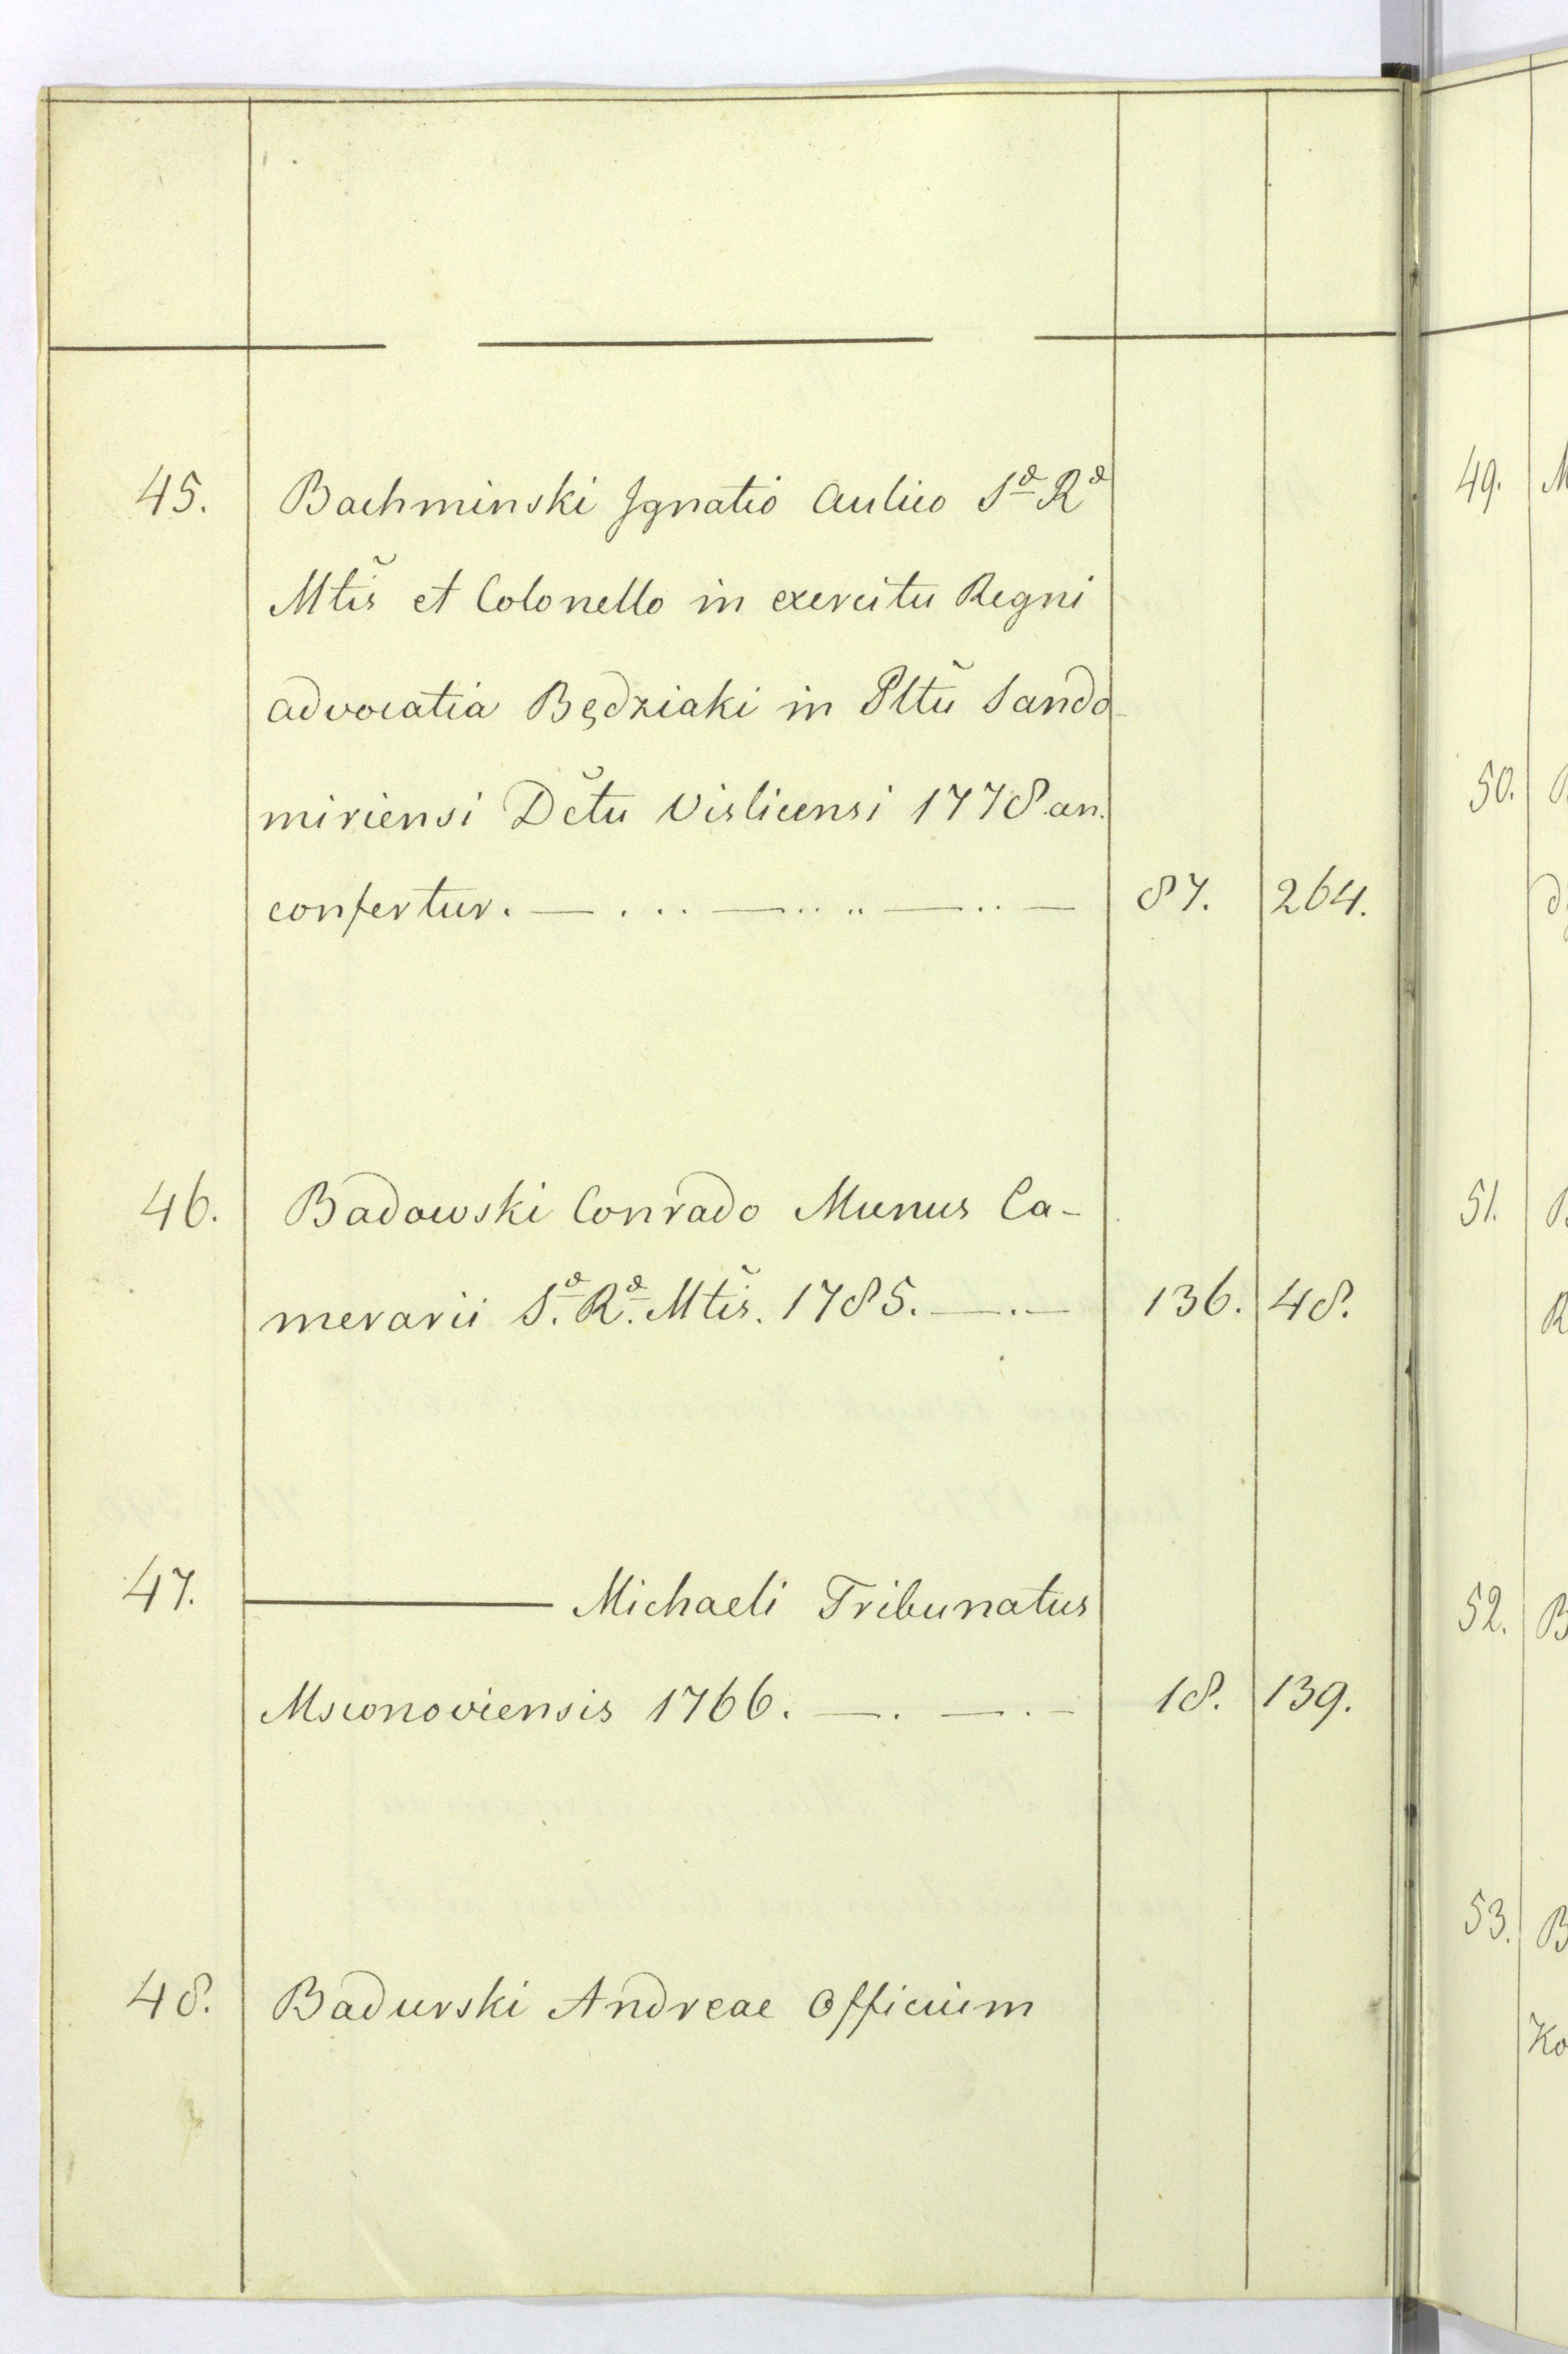 45. Bachminski Ignatio Aulico Sæ Ræ
Mtis̃ et Colonello in exercitu Regni
advocatia Będziaki in Pltũ Sando-
miriensi Dc̃tu Vislicensi 1778 an.
confertur. — . .. — .. .. — .. — 87. 264.
46. Badowski Conrado Munus Ca-
merarii S.æ R.æ Mtis̃. 1785. — . — 136. 48.
47. ——— Michaeli Tribunatus
Msconoviensis 1766. — . — . — 18. 139.
48. Badurski Andreae Officium
49. M
50.
51. B
R
52. B
53. B
Ko